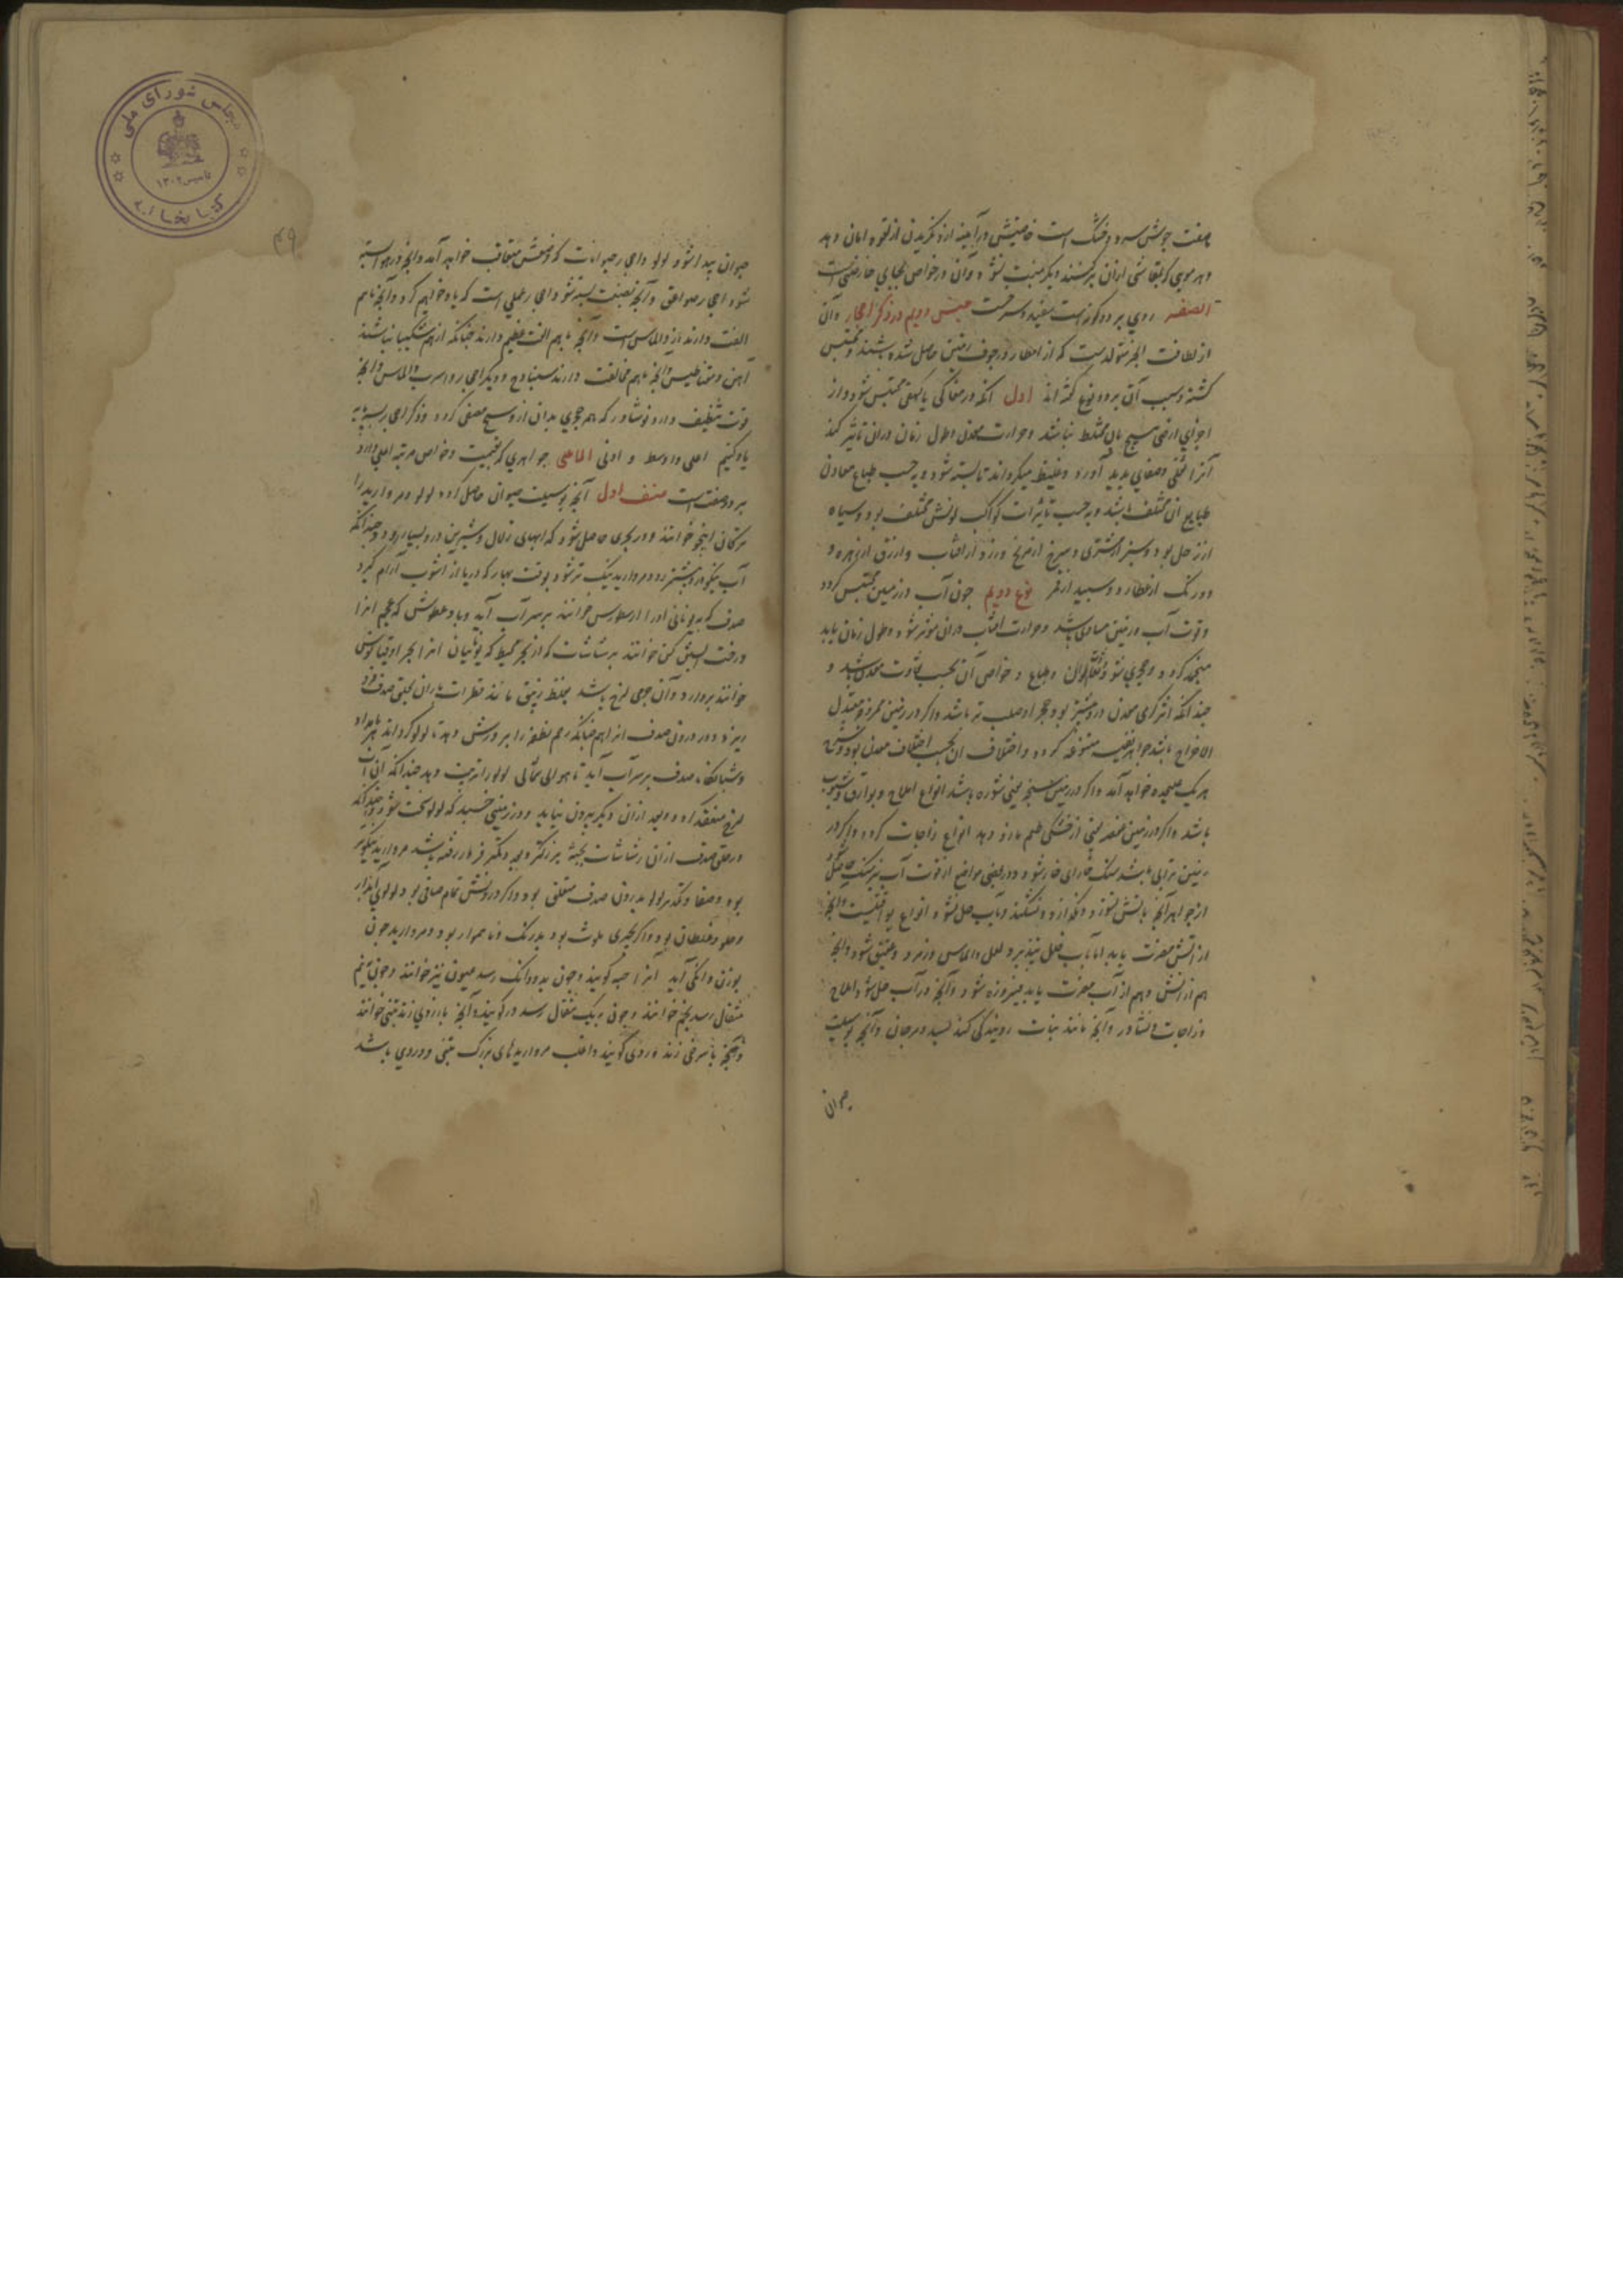 صفت جوشش سرد و خشک است خاصیتش در آینه از و نگریدن از لقوه امان دهد
و هر موی که بمقاشی ازان برکشند دیگر منبت نشود و آن در خواص بجایی خارضی است
الصفر روی بر دو گونه است سفید و سرخست جنس دویم در ذکر احجار و آن
از لطافت ابخره متولدست که از امطار در جوف زمین حاصل شده باشند و محتبس
گشته و سبب آن بر دو نوع گفته‌اند اول آنکه در مغاکی یا کهفی محتبس شود و از
اجزای ارضی هیچ بآن مختلط نباشد و حرارت معدن و طول زمان در آن تاثیر کند
آنرا ثقلی و صفای پدید آورد و غلیظ میگرداند تا بسته شود و بحسب طباع معادن
طبایع آن مختلف باشد و بحسب تاثیرات کواکب لونش مختلف بود و سیاه
از زحل بود و سبز از مشتری و سرخ از مریخ و زرد از آفتاب و ازرق از زهره و
دو رنگ از عطارد و سپید از قمر نوع دویم چون آب در زمین محتبس گردد
و قوت آب و زمین مساوی باشد و حرارت آفتاب در آن موثر شود و بطول زمان یابد
منجمد گردد و حجری شود و الوان و طباع و خواص آن بحسب تفاوت معدن باشد و
چندانکه اثر گرمی معدن درو بیشتر بود حجر او صلب‌تر باشد و اگر در زمین معتدل
المزاج باشد جواهر نفیسه متنوعه گردد و اختلاف آن بحسب اختلاف معدن بود و شرح
هر یک علیحده خواهد آمد و اگر در زمین سبخه یعنی شوره باشد انواع املاح و بوارق و شبوب
باشد و اگر در زمین عفص یعنی از خشکی طعم مازو دهد انواع زاجات گردد و اگر در
زمین ترابی باشد سنگ خارای خار شود و در بعضی مواضع از قوت آب نیز سنگ حاصل شود
از جواهر آنچه بآتش نسوزد و نگدازد و نشکند و بآب حل نشود انواع یواقیت است و آنچه
از آتش مضرت یابد اما بآب خلل نپذیرد لعل و الماس و زمرد و عقیق شود و آنچه
هم از آتش و هم از آب مضرت یابد فیروزه شود و آنچه در آب حل شود املاح
و زاجات و نشادر و آنچه مانند نبات رویندگی کند بسد و مرجان و آنچه بوسیلت
حیوان
۴۹
حیوان پیدا شود لولو و احجار حیوانات که وصفش متعاقب خواهد آمد و آنچه در هوا بسته
شود احجار صواعق و آنچه بصنعت بسته شود احجار عملی است که یاد خواهیم کرد و آنچه باهم
الفت دارند زر و الماس است و آنچه باهم الفت عظیم دارند چنانکه از هم شکیبا نباشند
آهن و مقناطیس و آنچه باهم مخالفت دارند سنباده و دیگر احجار و اسرب و الماس و آنچه
قوت تنظیف دارد نوشادر که هر حجری بدان از وسخ مصفی گردد و ذکر احجار بر سه پایه
یاد کنیم اعلی و اوسط و ادنی الماعلی جواهری که بقیمت و خواص مرتبه اعلی دارد
بر دو صنف است صنف اول آنچه بوسیلت حیوان حاصل گردد لولو و مروارید را
ترکان اینجو خوانند و در بحری حاصل شود که آبهای زلال و شیرین درو بسیار رود و چندانکه
آب نیکو درو بیشتر رود مروارید نیک‌تر شود بوقت بهار که دریا از آشوب آرام گیرد
صدف که یونانی او را ارسطورس خوانند بر سر آب آید و باد عطوش که عجم آنرا
درخت آبستن کن خوانند برشاشات که از بحر محیط که یونانیان آنرا بحر اوقیانوس
خوانند بردارد و آن چیزی لزج باشد بغلظ زیبق مانند قطرات باران بحلق صدف فرو
ریزد و در درون صدف آنرا هم چنانکه رحم نطفه را پرورش دهد تا لولو گرداند هر بامداد
و شبانگاه صدف بر سر آب آید تا هوای شمالی لولو را تربیت دهد چندانکه آن آب
لزج منعقد گردد و بعد ازان دیگر بیرون نیاید و در زمینی خسبد که لولو سخت شود و چندانکه
در حلق صدف ازان رشاشات بجثه بزرگتر و بعدد کمتر فرو رفته باشد مروارید نیکوتر
بود و صفا و کدر لولو بدرون صدف متعلق بود و اگر درونش تمام صافی بود لولوی آبدار
و حلو و غلطان بود و اگر بچیزی ملوث بود بدرنگ و ناهموار بود و مروارید چون
بوزن دانگی آید آنرا حبه گویند و چون بدو دانگ رسد عیون نیز خوانند و چون بنیم
مثقال رسد نجم خوانند و چون بیک مثقال رسد در گویند و آنچه بازردی زند تبنی خوانند
و آنچه با سرخی زند وردی گویند و اغلب مرواریدهای بزرگ تبنی و وردی باشد
مجلس شورای ملی
تاسیس ۱۳۰۲
کتابخانه